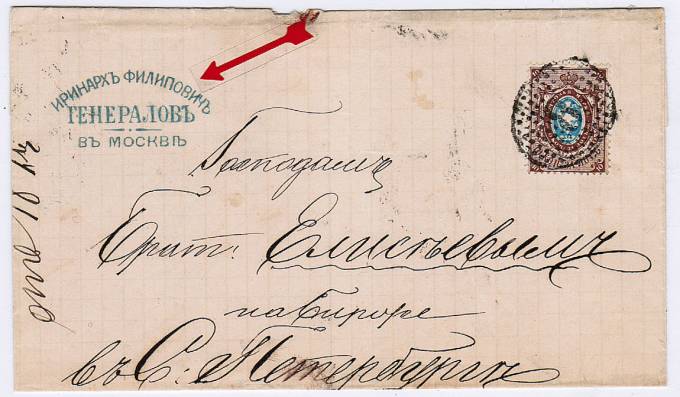 ИРИНАРХЪ ФИЛИПОВИЧЪ
ГЕНЕРАЛОВЪ
ВЪ МОСКВѢ
Господамъ
Брат: Елисѣевымъ
на Бирже
въ С: Петербургъ